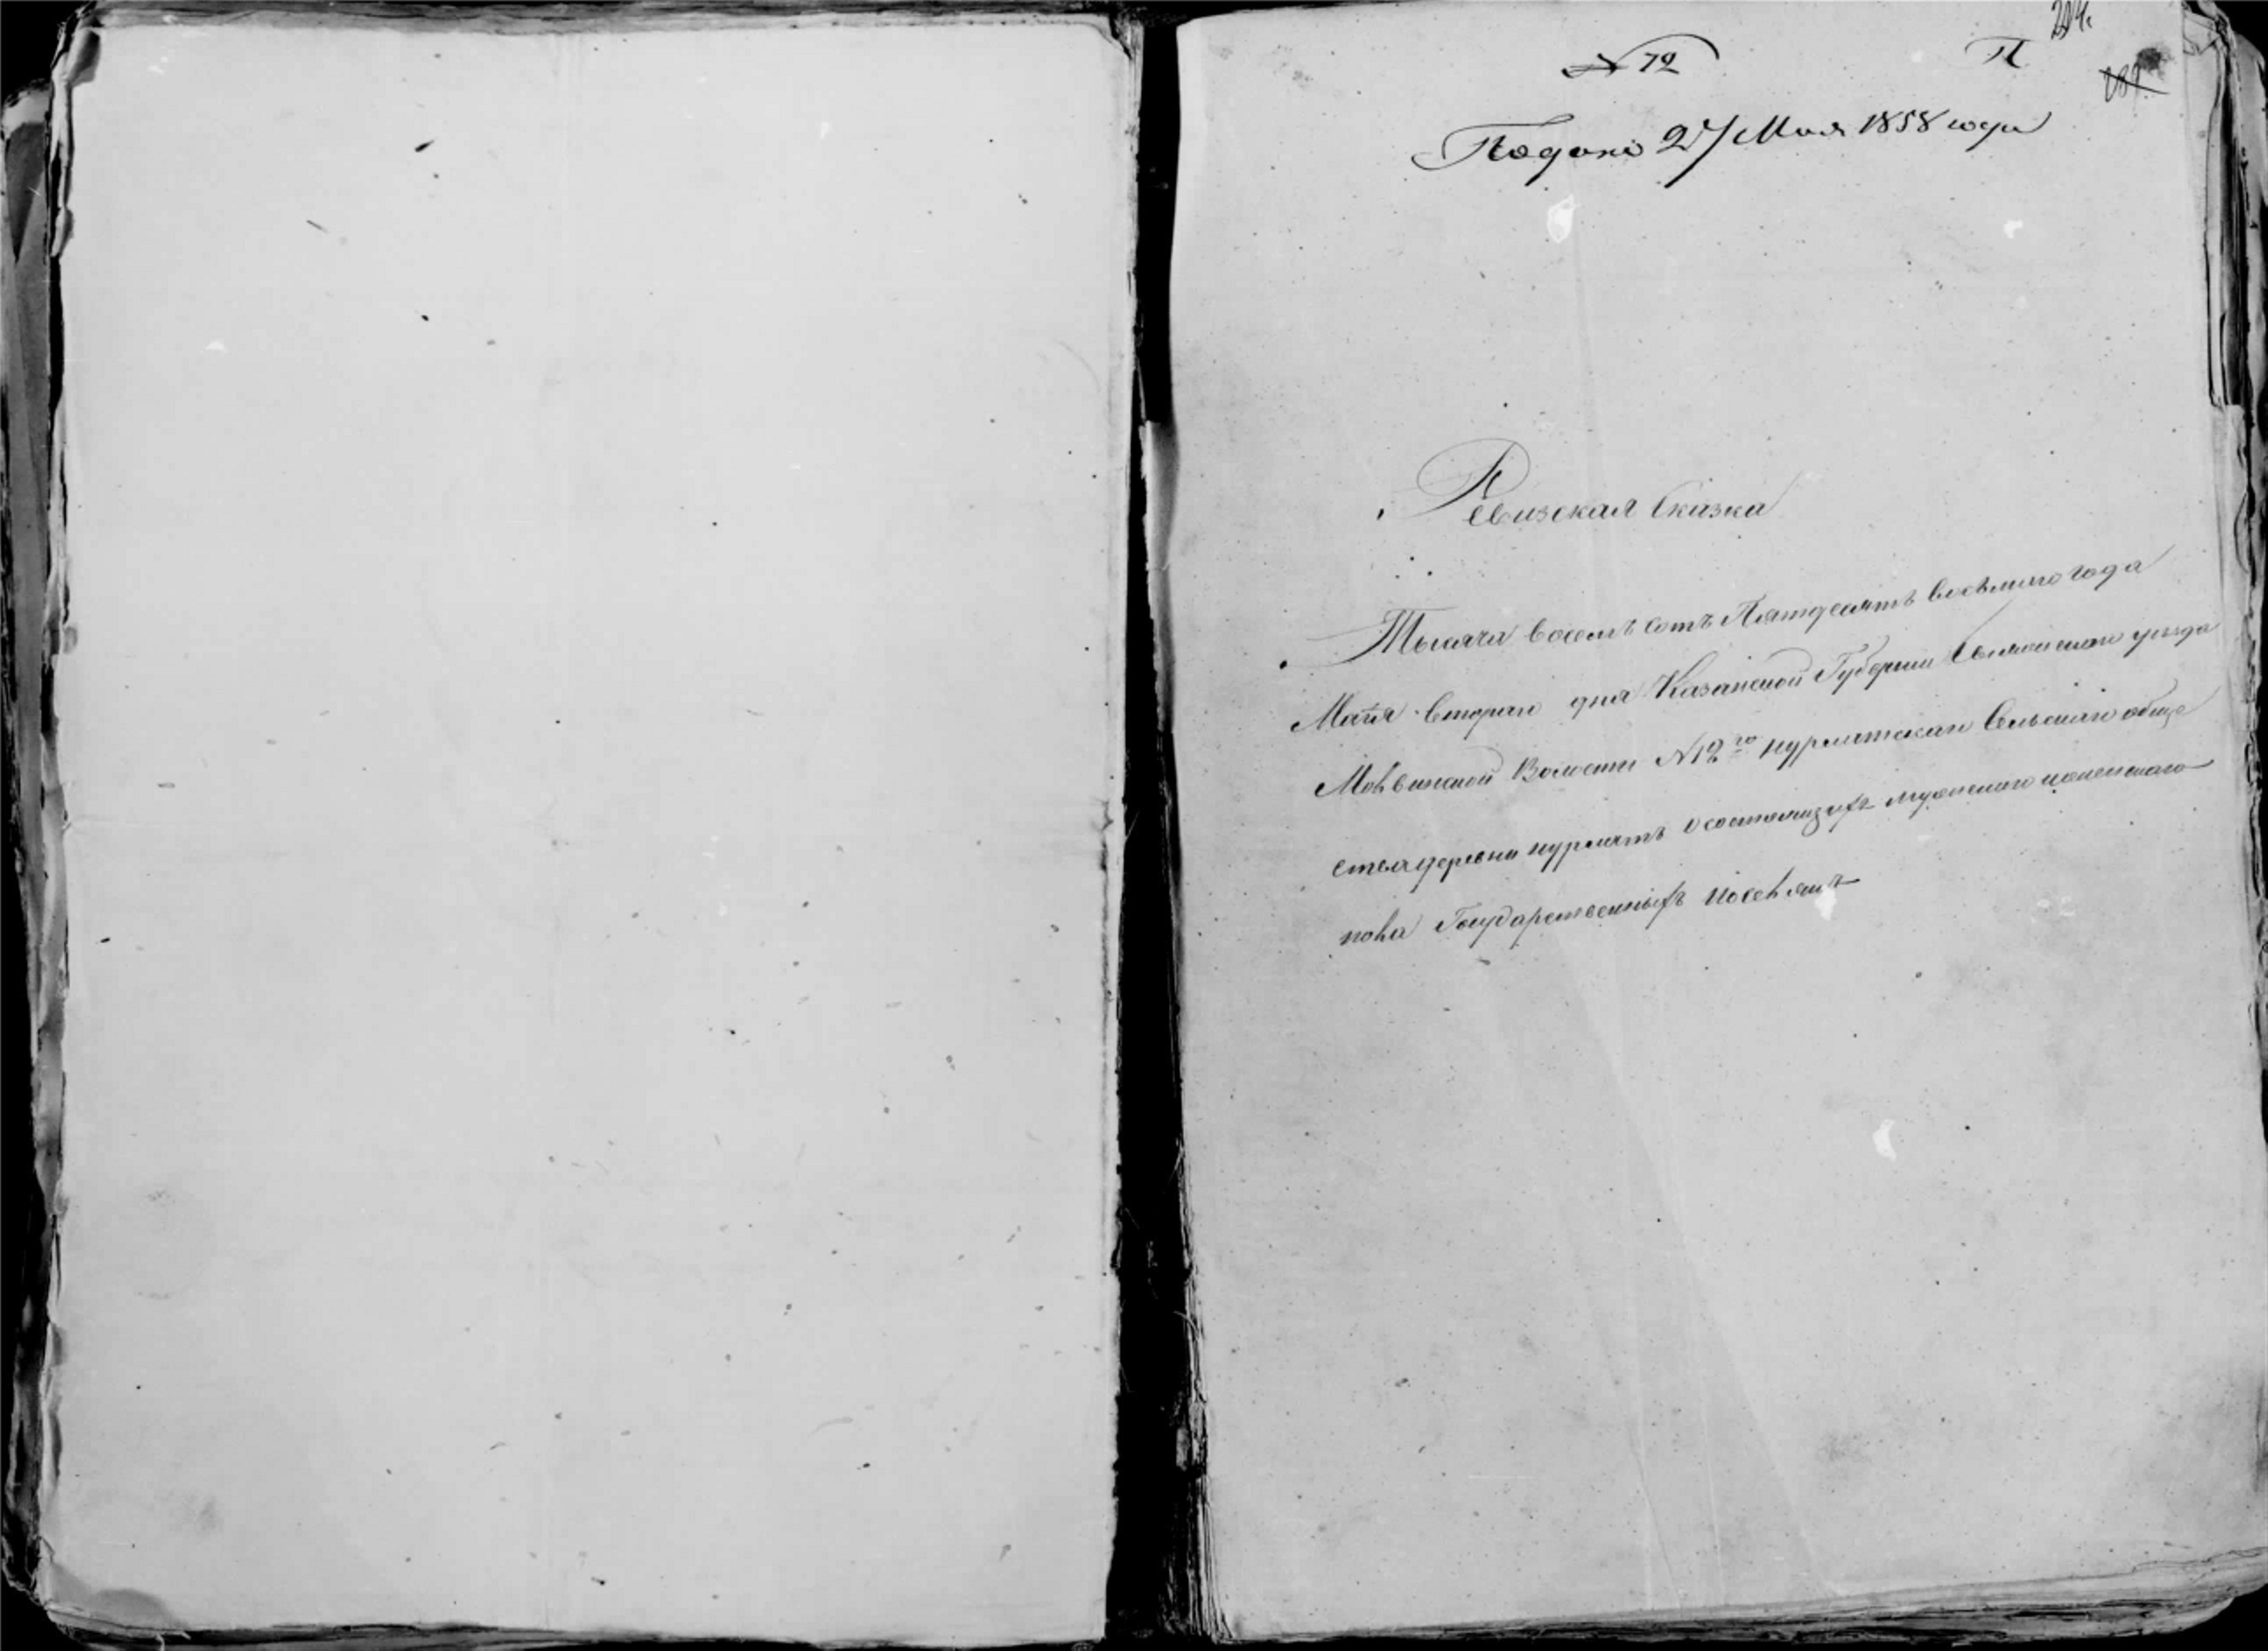 № 12
П
204
Подана 27 Мая 1858 года
Ревизская Сказка
Тысяча восемь сотъ Пятдесятъ восьмаго года
Маия втораго дня Казанской Губерніи Свіяжскаго уѣзда
Волости №12го нурлатскаго Сельскаго обще
ства деревни нурлатъ о состоящихъ мужескаго и женскаго
пола Государственныхъ поселянъ